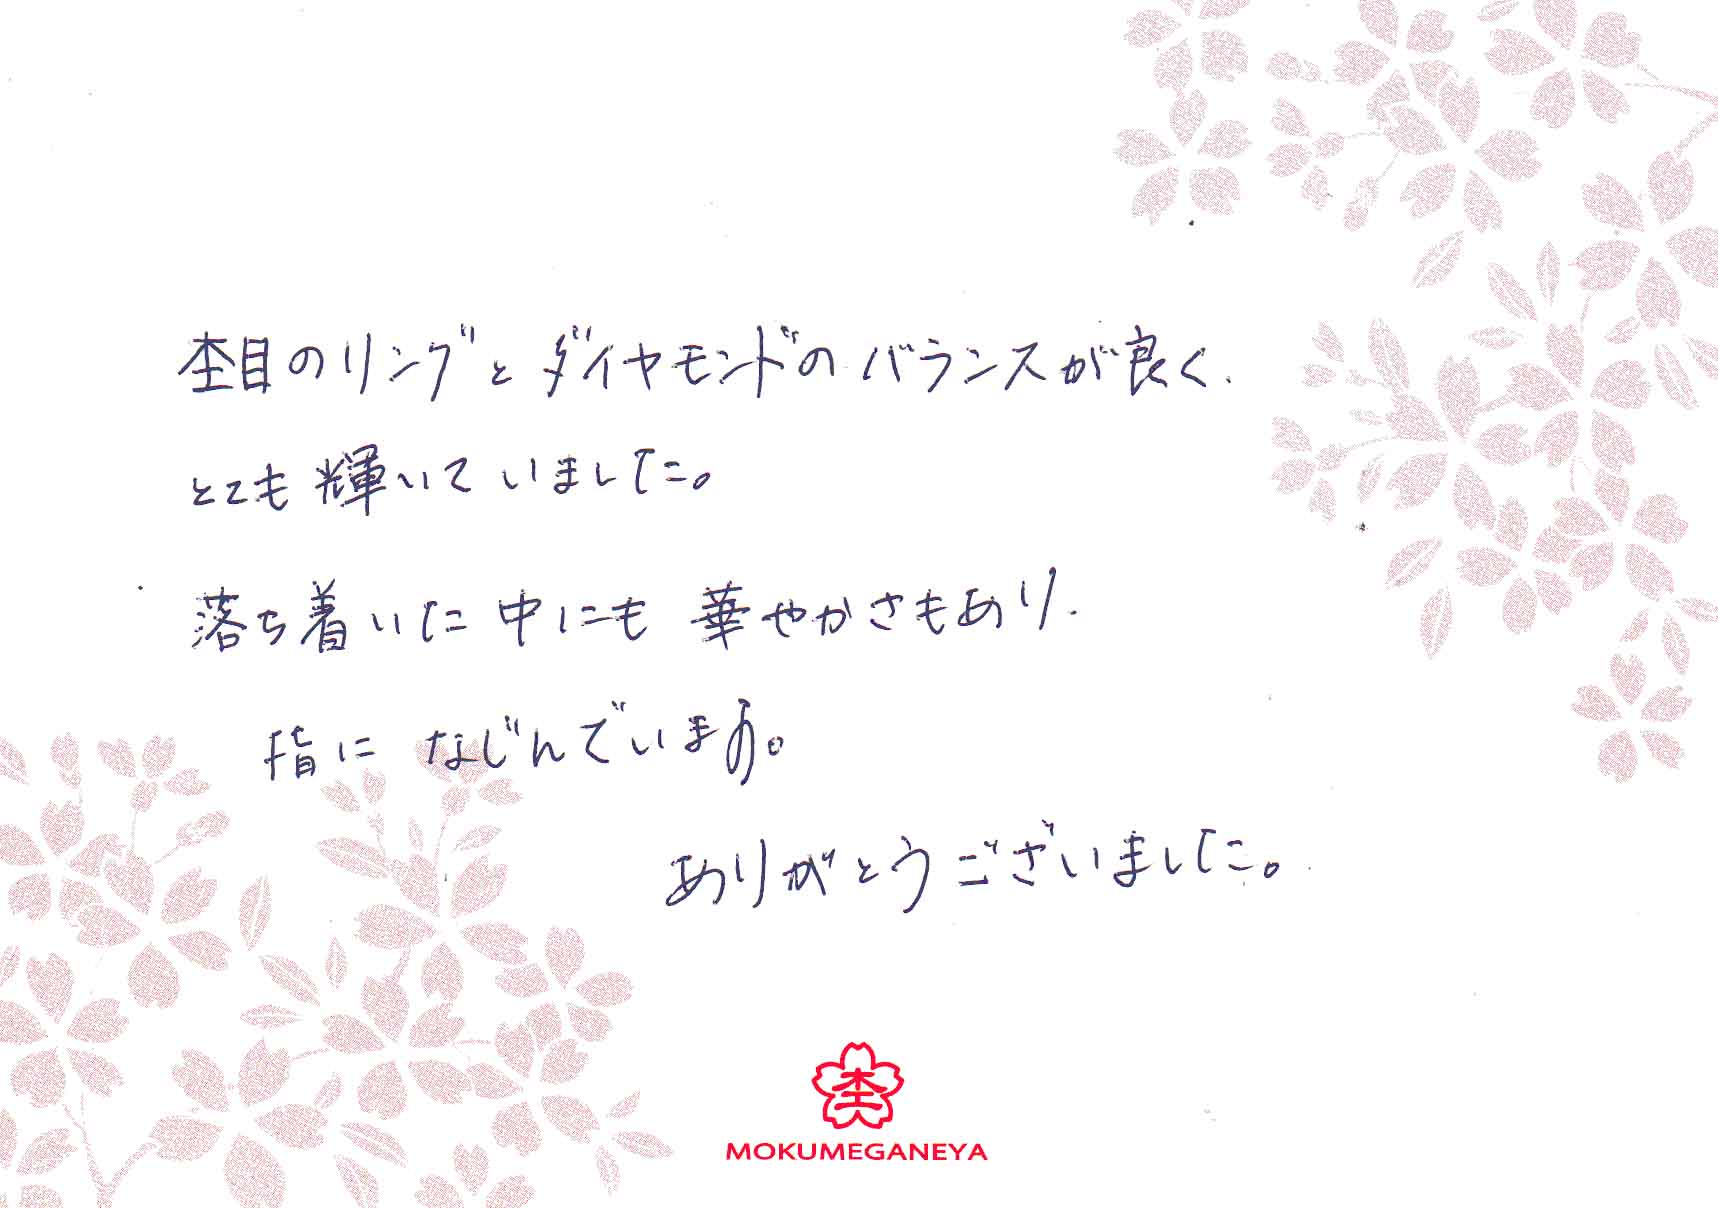 杢目のリングとダイヤモンドのバランスが良く、
とても輝いていました。
落ち着いた中にも華やかさもあり、
指になじんでいます。
ありがとうございました。
杢
MOKUMEGANEYA